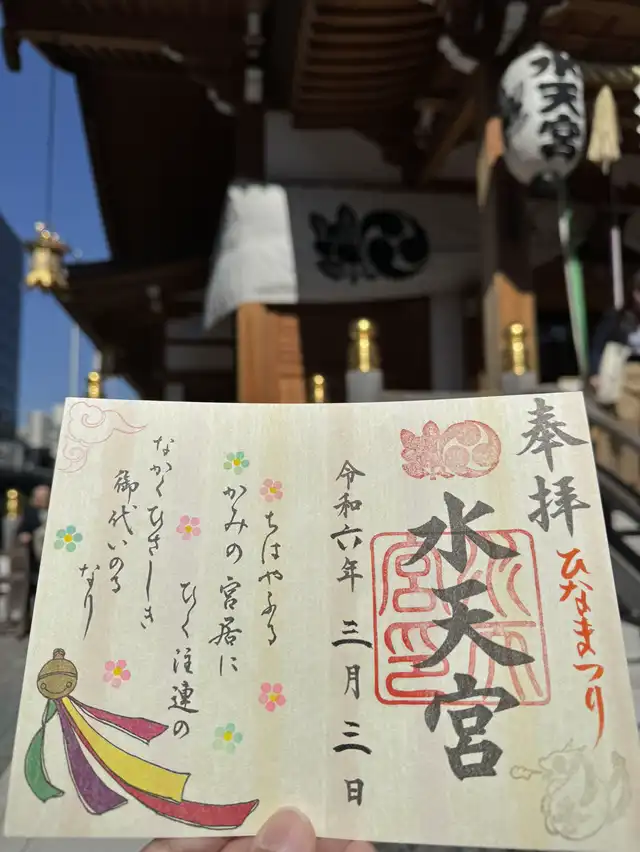 水天宮
奉拝
ひなまつり
水天宮
水天宮印
令和六年 三月三日
ちはやふる
かみの宮居に
ひく注連の
なかくひさしき
御代いのる
なり